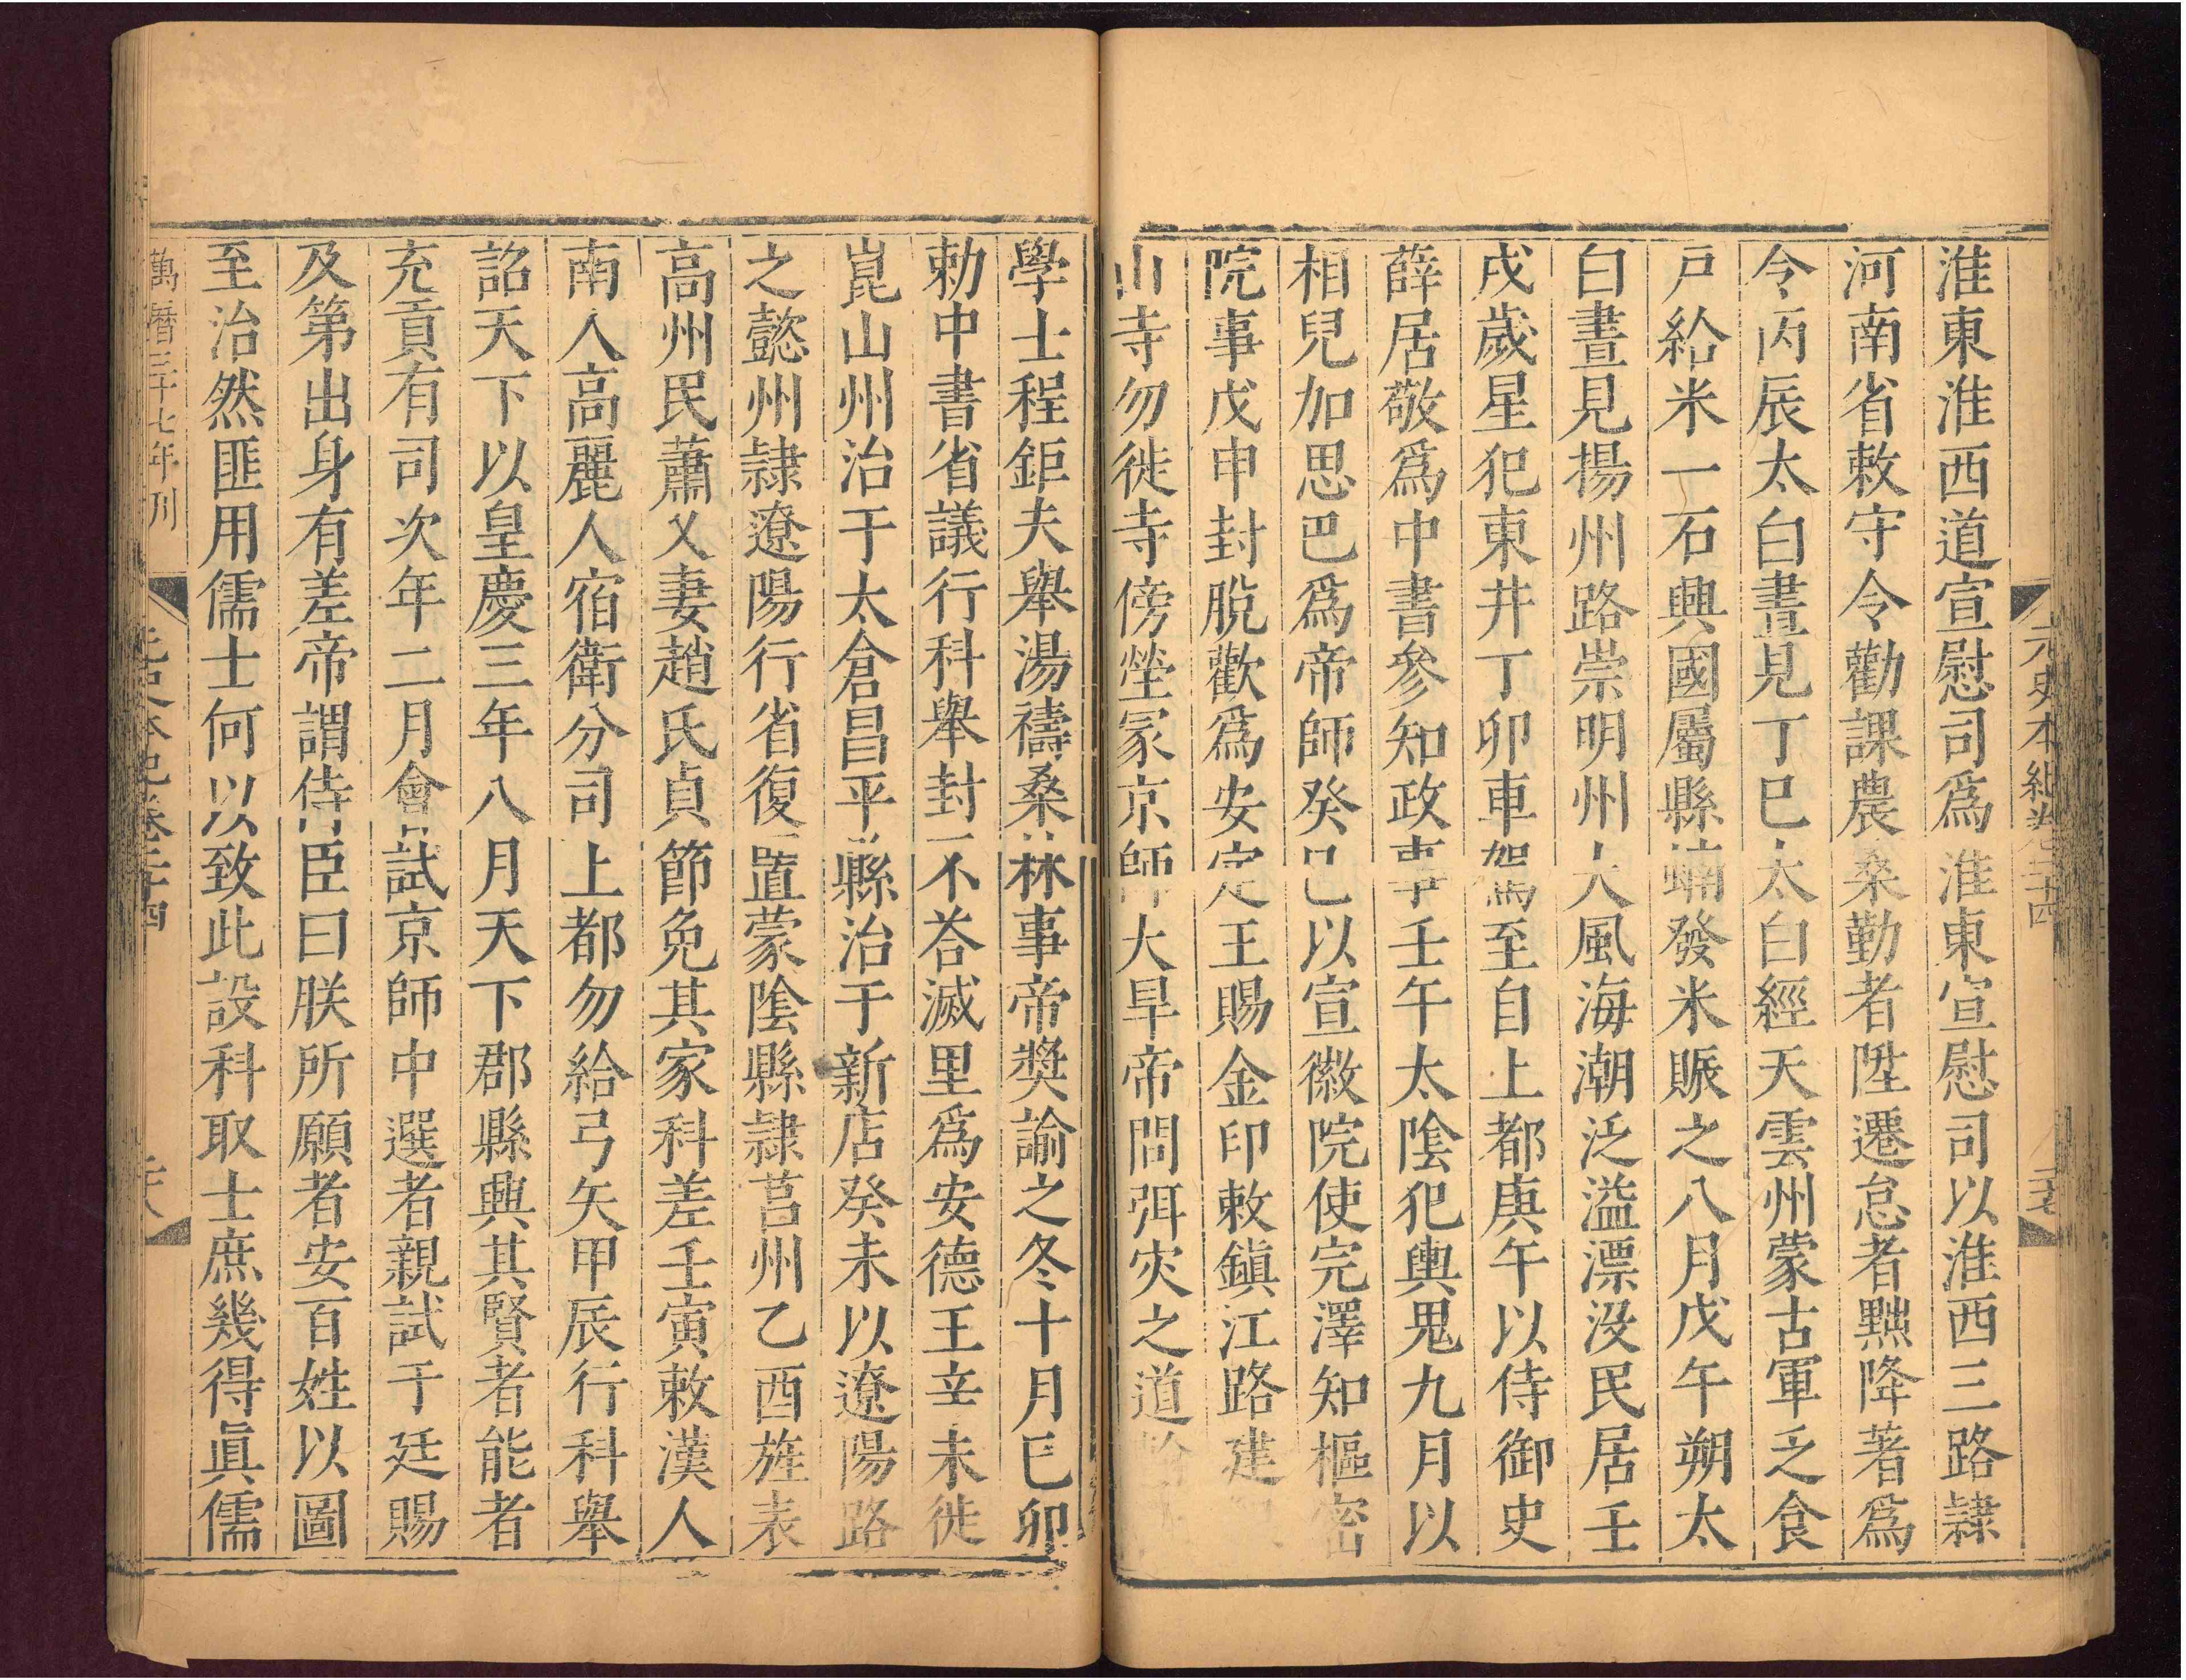 元史本紀卷二十四
淮東淮西道宣慰司爲淮東宣慰司以淮西三路隷
河南省敕守令勸課農桑勤者陞遷怠者黜降著爲
令丙辰太白晝見丁巳太白經天雲州蒙古軍乏食
戸給米一石興國屬縣蝻發米賑之八月戊午朔太
白晝見揚州路崇明州大風海潮泛溢漂没民居壬
戌歲星犯東井丁卯車駕至自上都庚午以侍御史
薛居敬爲中書參知政事壬午太陰犯輿鬼九月以
相兒加思巴爲帝師癸巳以宣徽院使完澤知樞密
院事戊申封脫歡爲安定王賜金印敕鎮江路建
山寺勿徙寺傍塋冢京師大旱帝問弭灾之道
學士程鉅夫舉湯禱桑林事帝奬諭之冬十月巳卯
勅中書省議行科舉封不荅滅里爲安德王辛未徙
崑山州治于太倉昌平縣治于新店癸未以遼陽路
之懿州隷遼陽行省復置蒙陰縣隷莒州乙酉旌表
高州民蕭乂妻趙氏貞節免其家科差壬寅敕漢人
南人高麗人宿衛分司上都勿給弓矢甲辰行科舉
詔天下以皇慶三年八月天下郡縣興其賢者能者
充貢有司次年二月會試京師中選者親試于廷賜
及第出身有差帝謂侍臣曰朕所願者安百姓以圖
至治然匪用儒士何以致此設科取士庶幾得眞儒
萬曆三十七年刊
元史本紀卷二十四
二十八